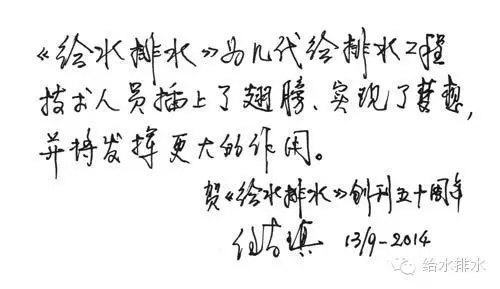 《给水排水》为几代给排水工程
技术人员插上了翅膀、实现了梦想,
并将发挥更大的作用。
贺《给水排水》创刊五十周年
13/9-2014
给水排水